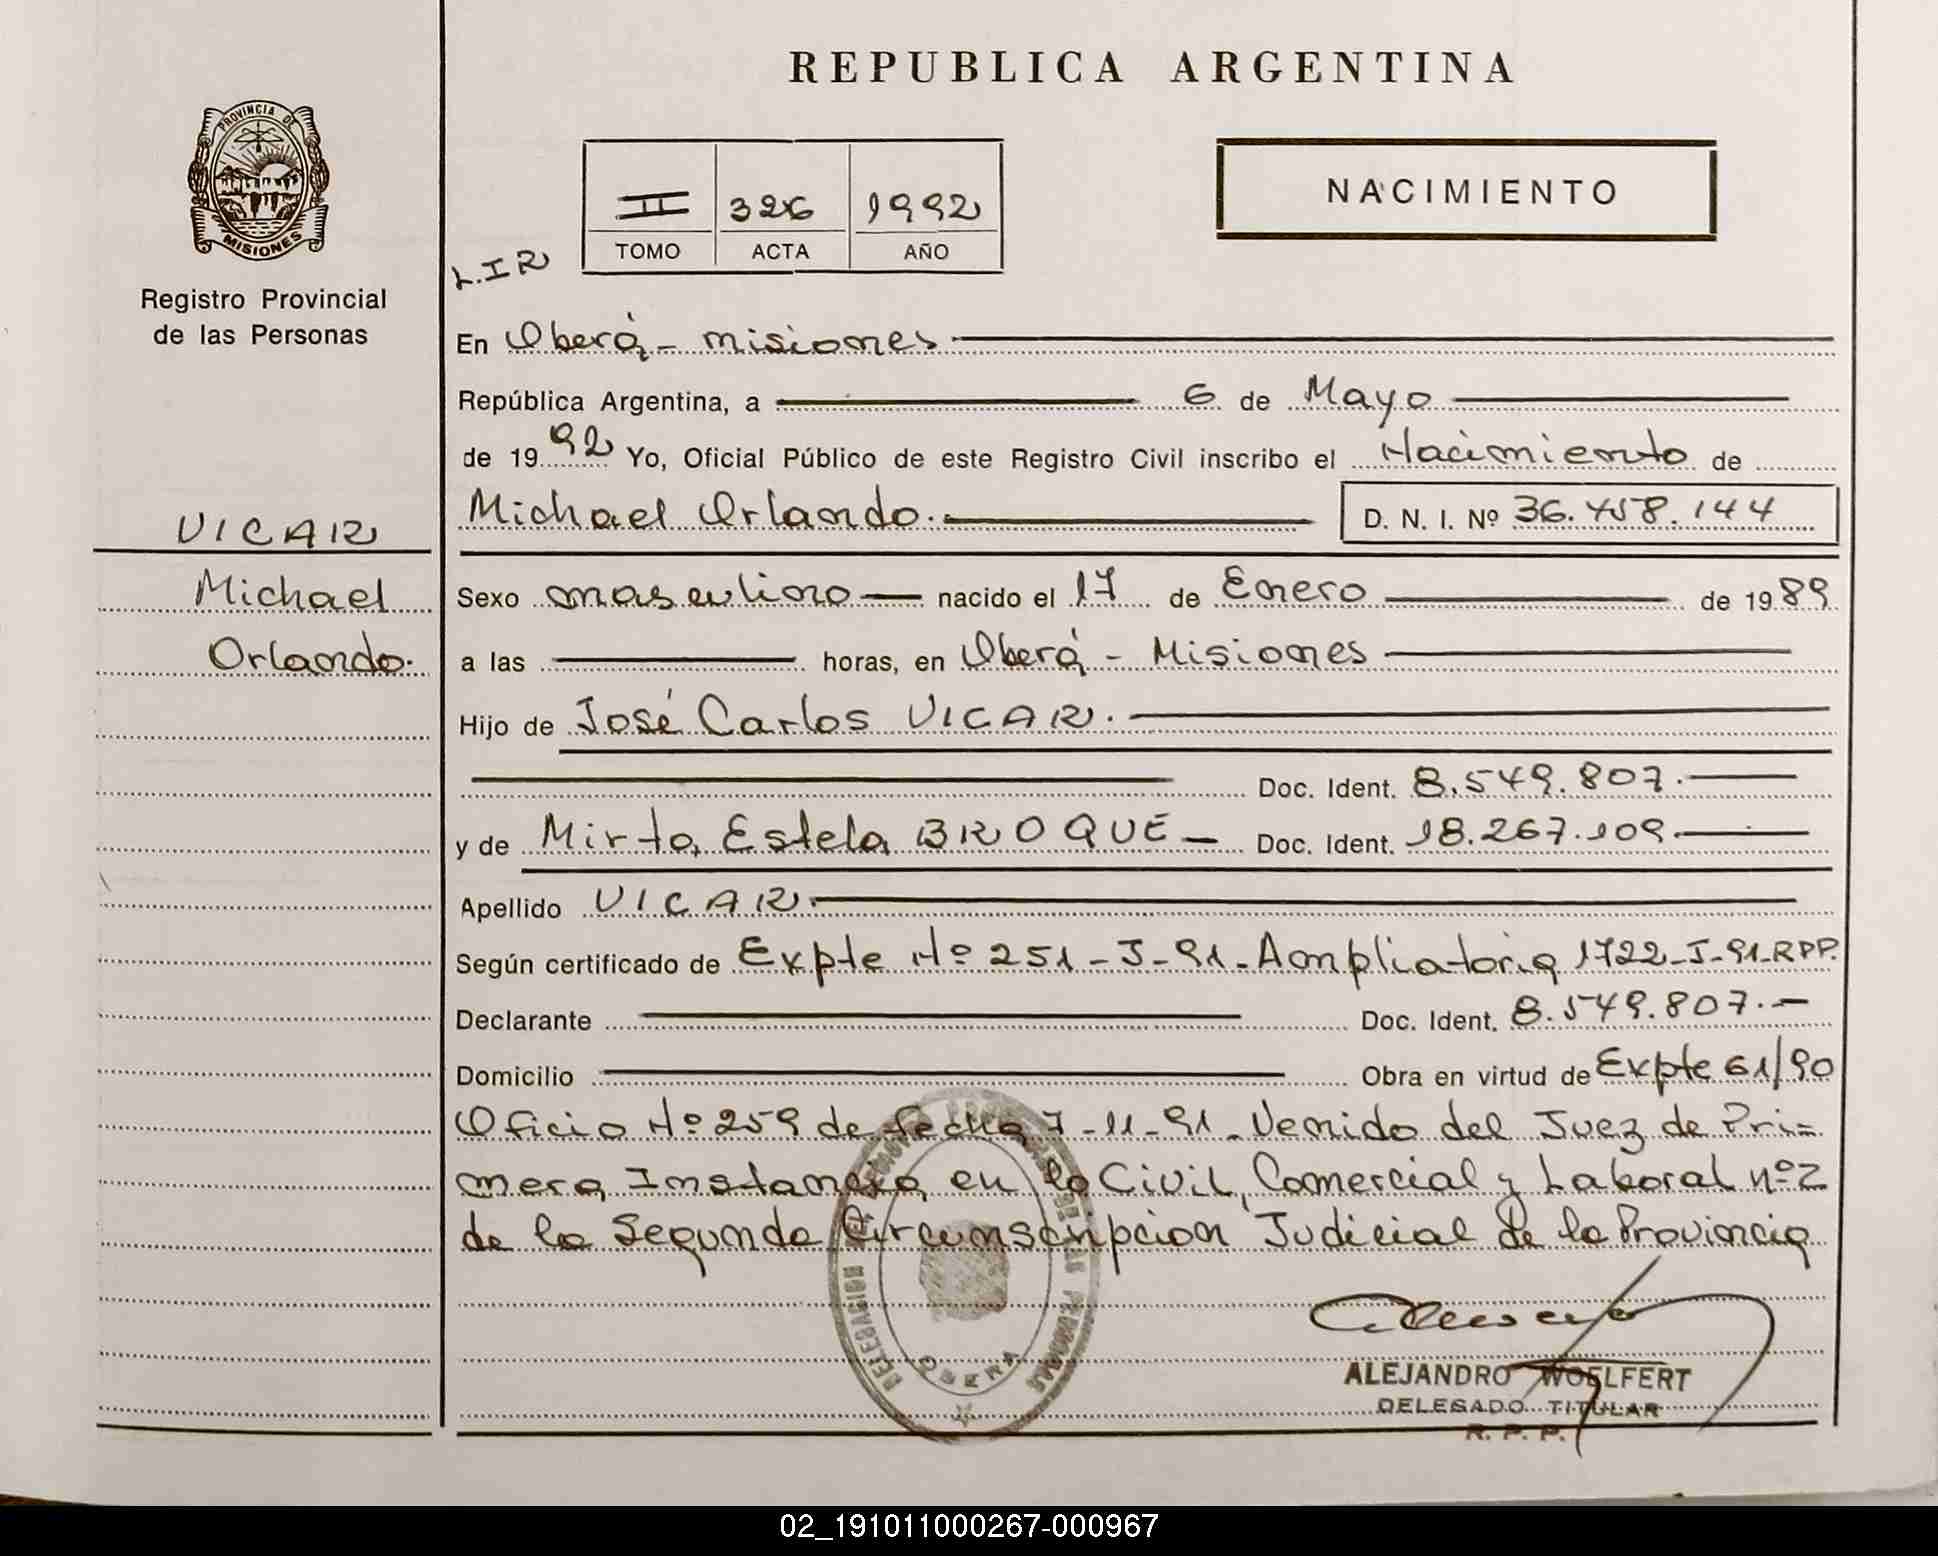 REPUBLICA ARGENTINA
PROVINCIA DE
MISIONES
Registro Provincial
de las Personas
NACIMIENTO
II 326 1992
TOMO ACTA AÑO
L.I.R
En Oberá - misiones
República Argentina, a 6 de Mayo
de 1992 Yo, Oficial Público de este Registro Civil inscribo el Nacimiento de
Michael Orlando. D. N. I. Nº 36.458.144
VICAR
Michael
Orlando.
Sexo masculino nacido el 17 de Enero de 1989
a las horas, en Oberá - Misiones
Hijo de José Carlos VICAR.
Doc. Ident. 8.549.807.
y de Mirta Estela BROQUE Doc. Ident. 18.267.109
Apellido VICAR
Según certificado de Expte Nº 251-J-91-Ampliatoria 1722-J-91-RPP.
Declarante Doc. Ident. 8.549.807.-
Domicilio Obra en virtud de Expte 61/90
Oficio Nº 259 de fecha 7-11-91-Venido del Juez de Pri=
mera Instancia en lo Civil, Comercial y Laboral nº 2
de la Segunda Circunscripcion Judicial de la Provincia
DELEGACION DE LAS PERSONAS
OBERA
ALEJANDRO WOELFERT
DELEGADO TITULAR
R. P. P.
02_191011000267-000967